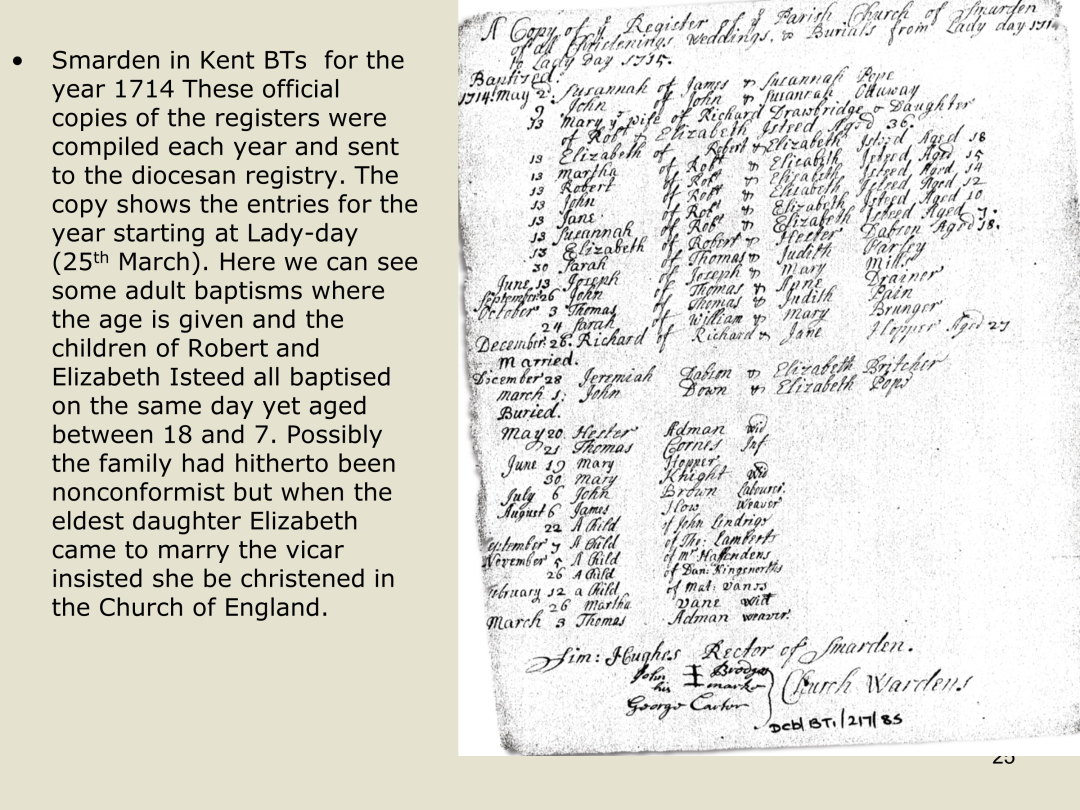 • Smarden in Kent BTs for the
year 1714 These official
copies of the registers were
compiled each year and sent
to the diocesan registry. The
copy shows the entries for the
year starting at Lady-day
(25th March). Here we can see
some adult baptisms where
the age is given and the
children of Robert and
Elizabeth Isteed all baptised
on the same day yet aged
between 18 and 7. Possibly
the family had hitherto been
nonconformist but when the
eldest daughter Elizabeth
came to marry the vicar
insisted she be christened in
the Church of England.
A Copy of ye Register of ye Parish Church of Smarden
of all Christenings Weddings, & Burials from Lady day 171
to Lady Day 1715.
Baptised.
1714 May 2. Susannah of James & Susannah Pope
9 John of John & Susannah Ottaway
13 Mary ye wife of Richard Drawbridge & Daughter
of Robt & Elizabeth Isteed Aged 36.
13 Elizabeth of Robert & Elizabeth Isteed Aged 18
13 Martha of Robt & Elizabeth Isteed, Aged 15
13 Robert of Robt & Elizabeth Isteed, Aged 14
13 John of Robt & Elizabeth Isteed, Aged 12
13 Jane of Robt & Elizabeth Isteed, Aged 10
13 Susannah of Robt & Elizabeth Isteed Aged 7.
13 Elizabeth of Robert & Hester Dabson Aged 18.
30 Sarah of Thomas & Judith Varley
June 13 Joseph of Joseph & Mary Miller
September 26 John of Thomas & Anne Drainer
October 3 Thomas of Thomas & Judith Pain
24 Sarah of William & Mary Brunger
December 26. Richard of Richard & Jane Hopper Aged 27
Married.
December 28 Jeremiah Dabson & Elizabeth Britcher
march 1; John Down & Elizabeth Pope
Buried.
May 20 Hester Adman Wid
21 Thomas Cornes Inf
June 19 Mary Hopper
30 Mary Knight Wid
July 6 John Brown Labourer.
August 6 James How Weaver
22 A Child of John Lindrigs
September 7 A Child of Tho: Lamberts
November 5 A Child of Mr Haffendens
26 A Child of Dan: Kingsnorths
February 12 a Child of Mat: Vanss
26 Martha Vane Wid
March 3 Thomas Adman weaver.
Sim: Hughes Rector of Smarden.
John Brodge
his marke
George Carter
Church Wardens
Dcb/BT1/217/85
25